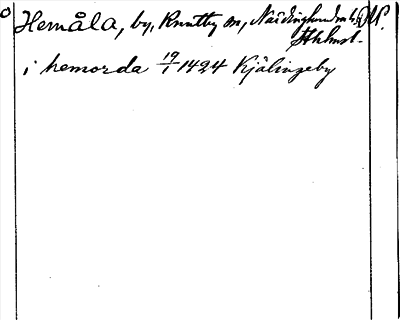 Hemåla, by, Knutby sn, Närdinghundra hd, U.
Sthlmsl.
i hemorda 19/1 1424 Kjälingeby